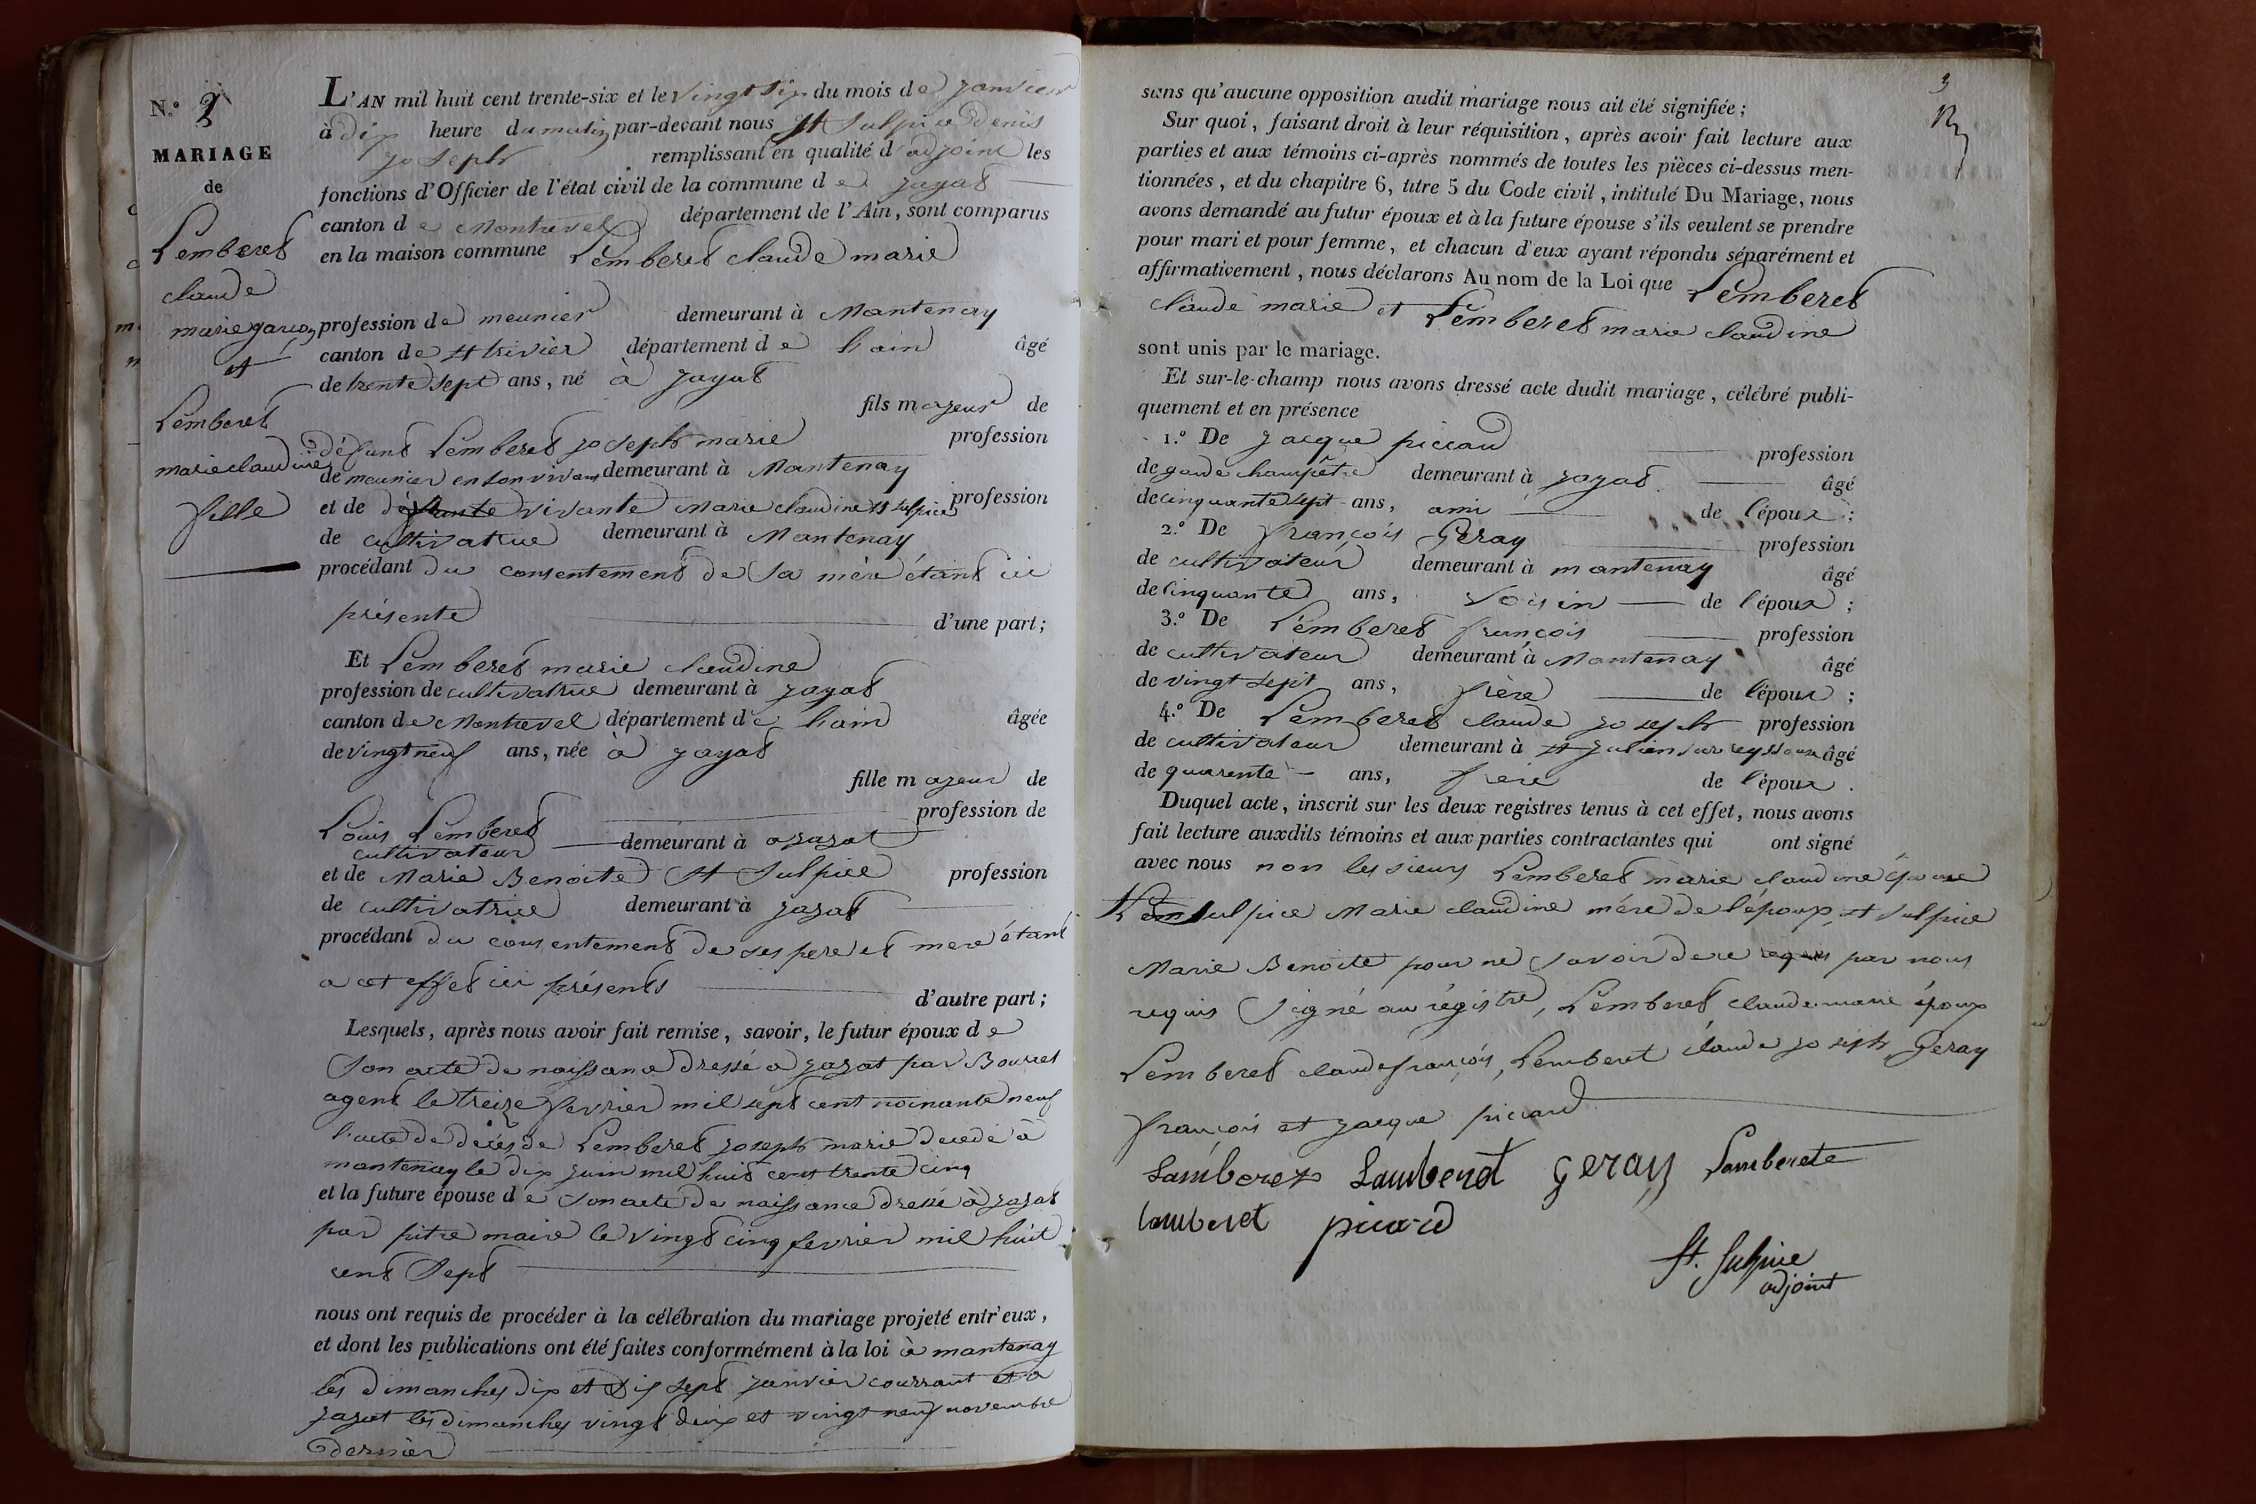 N.o 3
MARIAGE
de
Lemberet
claude
marie garçon
et
Lemberet
marie claudine
fille
L'AN mil huit cent trente-six et le vingt six du mois de janvier
à dix heure du matin par-devant nous St Sulpice denis
joseph remplissant en qualité d'adjoint les
fonctions d'Officier de l'état civil de la commune de jayat
canton de Montrevel département de l'Ain, sont comparus
en la maison commune Lemberet claude marie
profession de meunier demeurant à Mantenay
canton de St trivier département de l'ain âgé
de trente sept ans, né à jayat
fils majeur de
défunt Lemberet joseph marie profession
de meunier en son vivant demeurant à Mantenay
et de défunte vivante Marie claudine St sulpice profession
de cultivatrice demeurant à Mantenay
procédant du consentement de sa mère étant ici
présente d'une part;
Et Lemberet marie claudine
profession de cultivatrice demeurant à jayat
canton de Montrevel département de l'ain âgée
de vingt neuf ans, née à jayat
fille majeur de
profession de
Louis Lemberet
cultivateur demeurant à a jayat
et de Marie Benoite St Sulpice profession
de cultivatrice demeurant à jayat
procédant du consentement de ses pere et mere étant
a cet effet ici présents d'autre part;
Lesquels, après nous avoir fait remise, savoir, le futur époux de
son acte de naissance dressé a jayat par Bourret
agent le treize fevrier mil sept cent noinante neuf
l'acte de décès de Lemberet joseph marie décédé à
mantenay le dix juin mil huit cent trente cinq
et la future épouse de son acte de naissance dressé à jayat
par pitre maire le vingt cinq fevrier mil huit
cent Sept
nous ont requis de procéder à la célébration du mariage projeté entr'eux,
et dont les publications ont été faites conformément à la loi à mantenay
les dimanches dix et dix sept janvier courrant et a
jayat les dimanches vingt deux et vingt neuf novembre
dernier
3
sans qu'aucune opposition audit mariage nous ait été signifiée;
Sur quoi, faisant droit à leur réquisition, après avoir fait lecture aux
parties et aux témoins ci-après nommés de toutes les pièces ci-dessus men-
tionnées, et du chapitre 6, titre 5 du Code civil, intitulé Du Mariage, nous
avons demandé au futur époux et à la future épouse s'ils veulent se prendre
pour mari et pour femme, et chacun d'eux ayant répondu séparément et
affirmativement, nous déclarons Au nom de la Loi que Lemberet
claude marie et Lemberet marie claudine
sont unis par le mariage.
Et sur-le-champ nous avons dressé acte dudit mariage, célébré publi-
quement et en présence
1.o De jacque piccard profession
de garde champêtre demeurant à jayat âgé
de cinquante sept ans, ami de l'époux;
2.o De françois Geray profession
de cultivateur demeurant à mantenay âgé
de cinquante ans, voisin de l'époux;
3.o De Lemberet françois profession
de cultivateur demeurant à Mantenay âgé
de vingt sept ans, frère de l'époux;
4.o De Lemberet claude joseph profession
de cultivateur demeurant à St julien sur reyssouze âgé
de quarente ans, frère de l'époux.
Duquel acte, inscrit sur les deux registres tenus à cet effet, nous avons
fait lecture auxdits témoins et aux parties contractantes qui ont signé
avec nous non les sieurs Lemberet marie claudine épouse
Lem sulpice Marie claudine mère de l'époux, st sulpice
Marie Benoite pour ne savoir de ce requis par nous
requis signé au régistre, Lemberet claude marie époux
Lemberet claude françois, Lemberet claude joseph Geray
françois et jacque piccard
Lamberet Lamberet Geray Lamberete
lamberet picard
St. Sulpice
adjoint